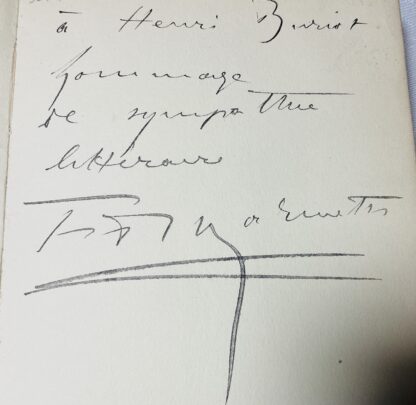 à Henri Buriot
hommage
de sympathie
littéraire
F T Marinetti